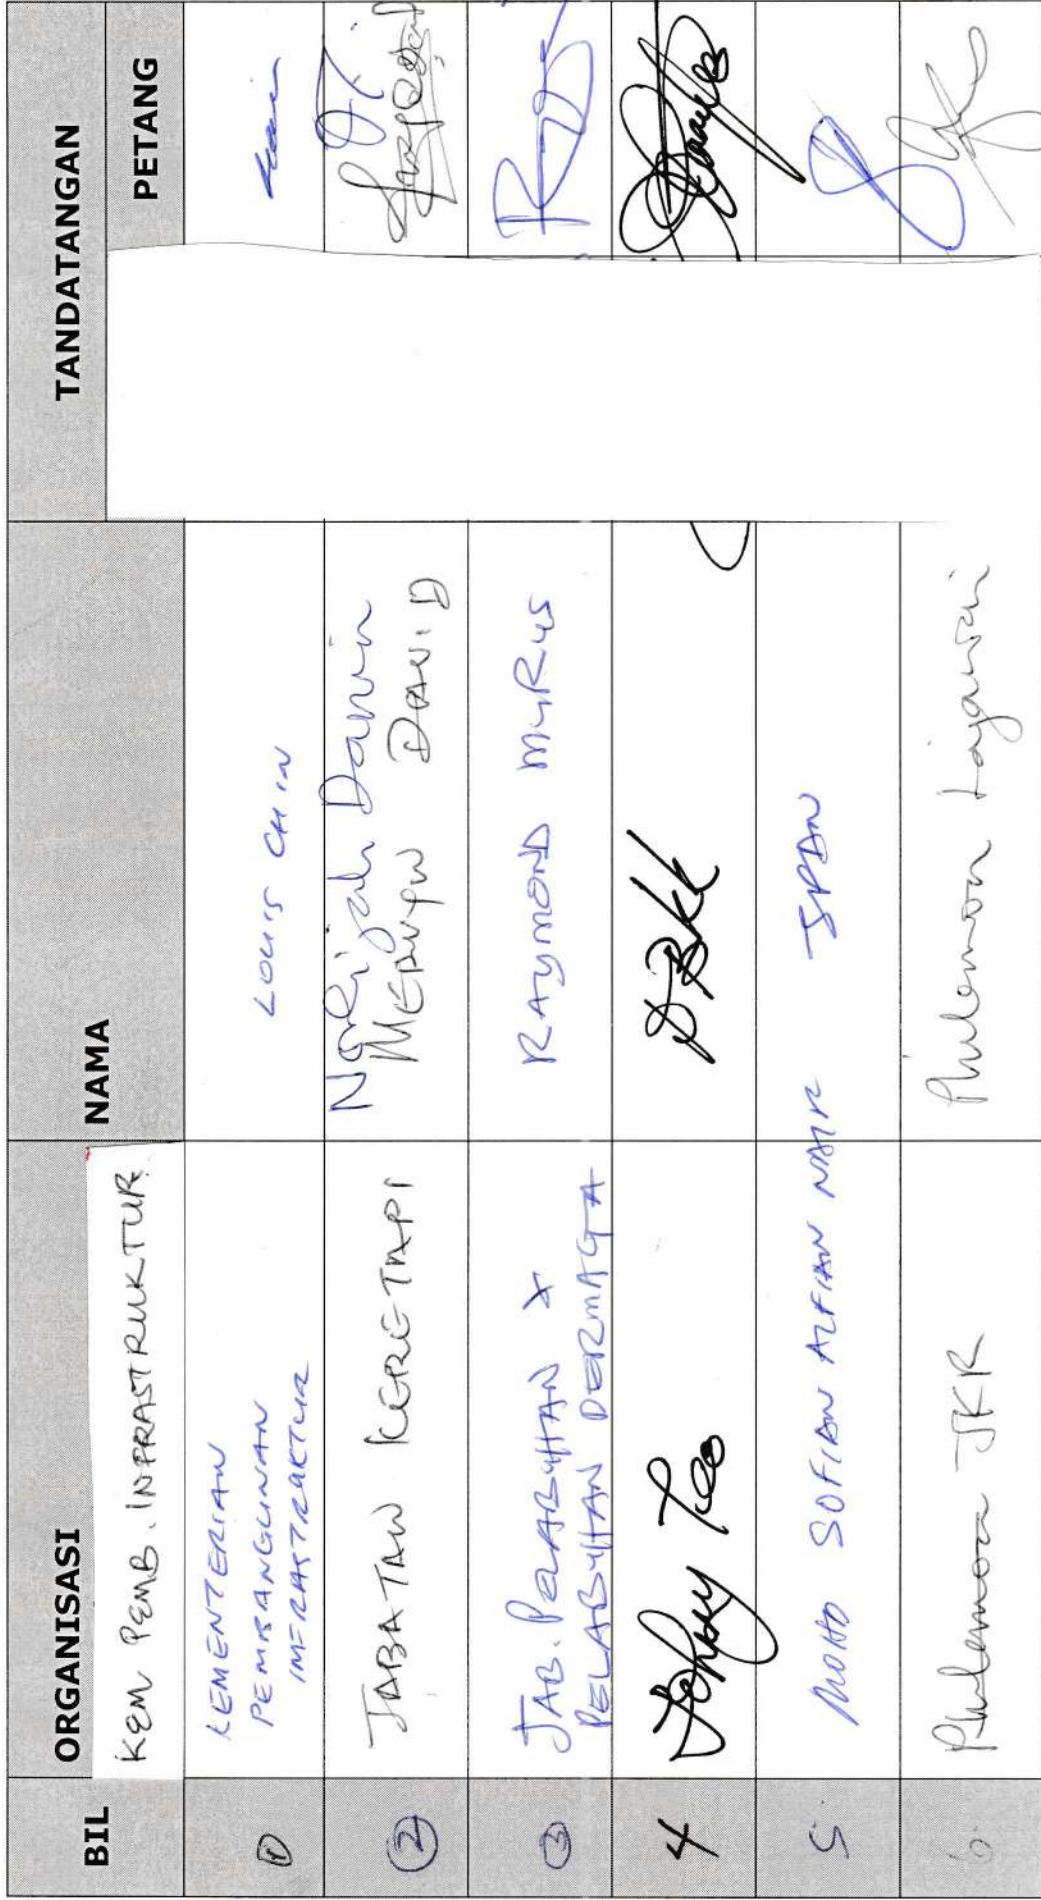 BIL ORGANISASI NAMA TANDATANGAN
PETANG
KEM PEMB. INFRASTRUKTUR
1 KEMENTERIAN
PEMBANGUNAN
INFRASTRUKTUR
LOUIS CHIN
2 JABATAN KERETAPI
Norlijah Danin
MERVYN DAVID
3 JAB. PELABUHAN &
PELABUHAN DERMAGA
RAYMOND MYRUS
4 Johnny Teo DBKK
5 MOHD SOFIAN ALFIAN NAIR JPDN
6 Philemon JKR Philemon